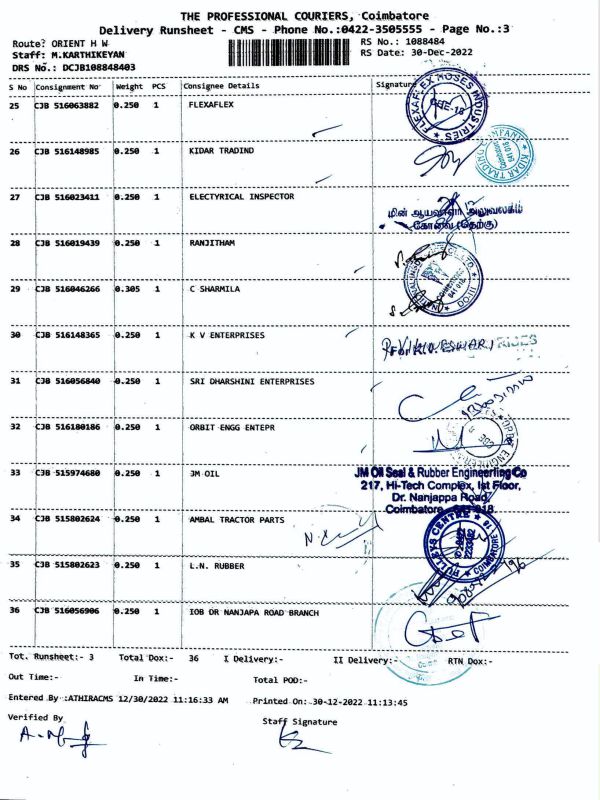 THE PROFESSIONAL COURIERS, Coimbatore
Delivery Runsheet - CMS - Phone No.:0422-3505555 - Page No.:3
Route? ORIENT H W
RS No.: 1088484
Staff: M.KARTHIKEYAN
RS Date: 30-Dec-2022
DRS No.: DCJB108848403
S No Consignment No Weight PCS Consignee Details Signature
25 CJB 516063882 0.250 1 FLEXAFLEX
FLEXAFLEX HOSES INDUSTRIES
26 CJB 516148985 0.250 1 KIDAR TRADIND
KIDAR TRADING COMPANY
27 CJB 516023411 0.250 1 ELECTYRICAL INSPECTOR
மின் ஆய்வாளர் அலுவலகம்
கோவை (தெற்கு)
28 CJB 516019439 0.250 1 RANJITHAM
29 CJB 516046266 0.305 1 C SHARMILA
30 CJB 516148365 0.250 1 K V ENTERPRISES
31 CJB 516056840 0.250 1 SRI DHARSHINI ENTERPRISES
32 CJB 516180186 0.250 1 ORBIT ENGG ENTEPR
33 CJB 515974680 0.250 1 JM OIL
JM Oil Seal & Rubber Engineering Co
217, Hi-Tech Complex, Ist Floor,
Dr. Nanjappa Road,
Coimbatore - 641 018.
34 CJB 515802624 0.250 1 AMBAL TRACTOR PARTS
PULLEYS CENTRE
COIMBATORE
35 CJB 515802623 0.250 1 L.N. RUBBER
36 CJB 516056906 0.250 1 IOB OR NANJAPA ROAD BRANCH
Tot. Runsheet:- 3 Total Dox:- 36 I Delivery:- II Delivery:- RTN Dox:-
Out Time:- In Time:- Total POD:-
Entered By :ATHIRACMS 12/30/2022 11:16:33 AM Printed On: 30-12-2022 11:13:45
Verified By
Staff Signature